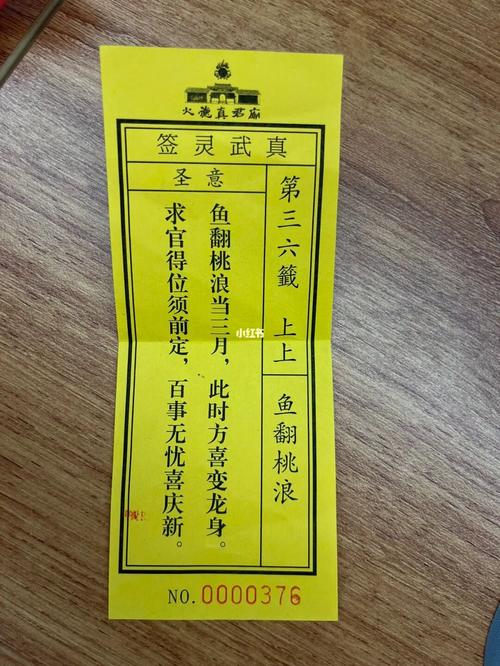 火德真君廟
签灵武真
第三六籤 上上
鱼翻桃浪
圣意
鱼翻桃浪当三月，此时方喜变龙身。
求官得位须前定，百事无忧喜庆新。
小红书
NO. 0000376